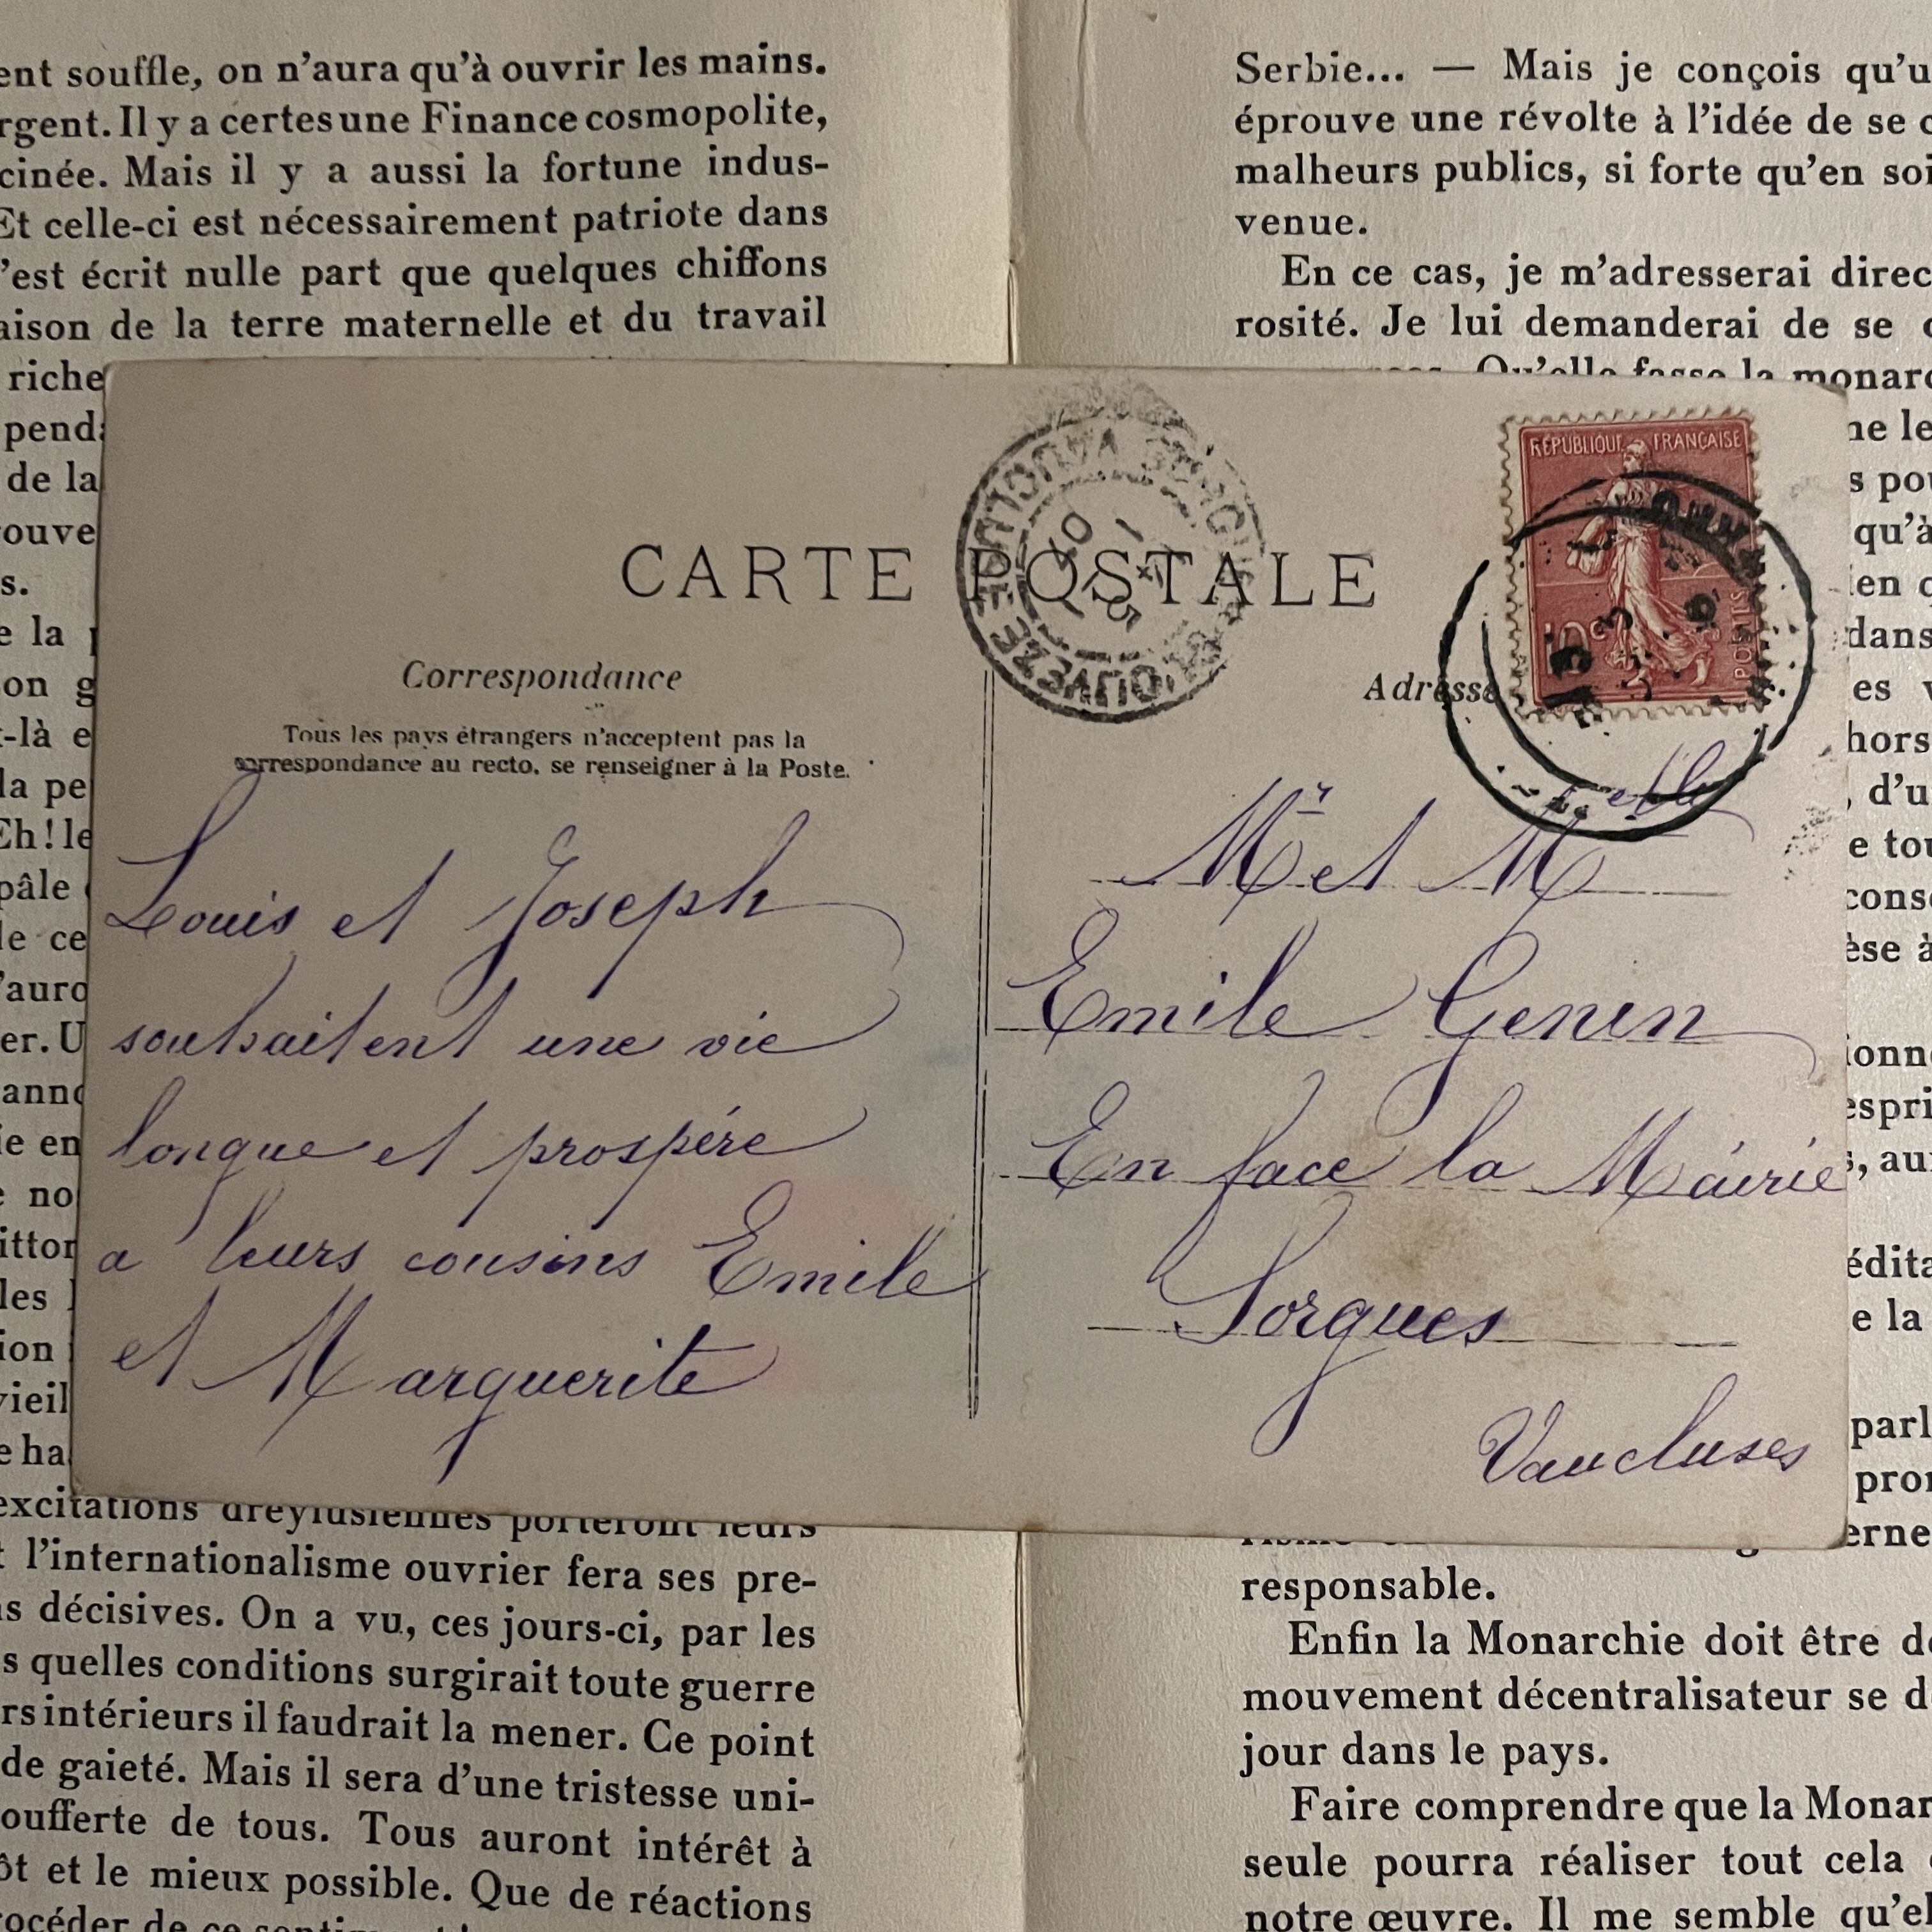 ent souffle, on n'aura qu'à ouvrir les mains.
rgent. Il y a certes une Finance cosmopolite,
cinée. Mais il y a aussi la fortune indus-
Et celle-ci est nécessairement patriote dans
'est écrit nulle part que quelques chiffons
aison de la terre maternelle et du travail
riche
pend
de la
rouve
s.
e la
on g
t-là e
la pe
Eh! le
pâle
le ce
'auro
er. U
anno
ie en
no
ittor
les
ion
vieil
e ha
excitations dreyfusiennes porteront leurs
t l'internationalisme ouvrier fera ses pre-
s décisives. On a vu, ces jours-ci, par les
s quelles conditions surgirait toute guerre
rs intérieurs il faudrait la mener. Ce point
de gaieté. Mais il sera d'une tristesse uni-
oufferte de tous. Tous auront intérêt à
ôt et le mieux possible. Que de réactions
océder de ce
CARTE POSTALE
Correspondance
Tous les pays étrangers n'acceptent pas la
correspondance au recto, se renseigner à la Poste.
Louis et Joseph
souhaitent une vie
longue et prospére
a leurs cousins Emile
et Marguerite
SORGUES-S-L'OUVEZE VAUCLUSE
RÉPUBLIQUE FRANÇAISE
10c
POSTES
Adresse
Mr et Melle
Emile Genin
En face la Mairie
Sorgues
Vaucluses
Serbie... — Mais je conçois qu'u
éprouve une révolte à l'idée de se c
malheurs publics, si forte qu'en soi
venue.
En ce cas, je m'adresserai direc
rosité. Je lui demanderai de se
Qu'elle fasse la monarc
ne le
s pou
qu'à
ien
dans
es
hors
, d'u
e tou
cons
èse à
ionne
espri
, au
édita
e la
parl
pron
erne
responsable.
Enfin la Monarchie doit être d
mouvement décentralisateur se d
jour dans le pays.
Faire comprendre que la Monar
seule pourra réaliser tout cela
notre œuvre. Il me semble qu'el